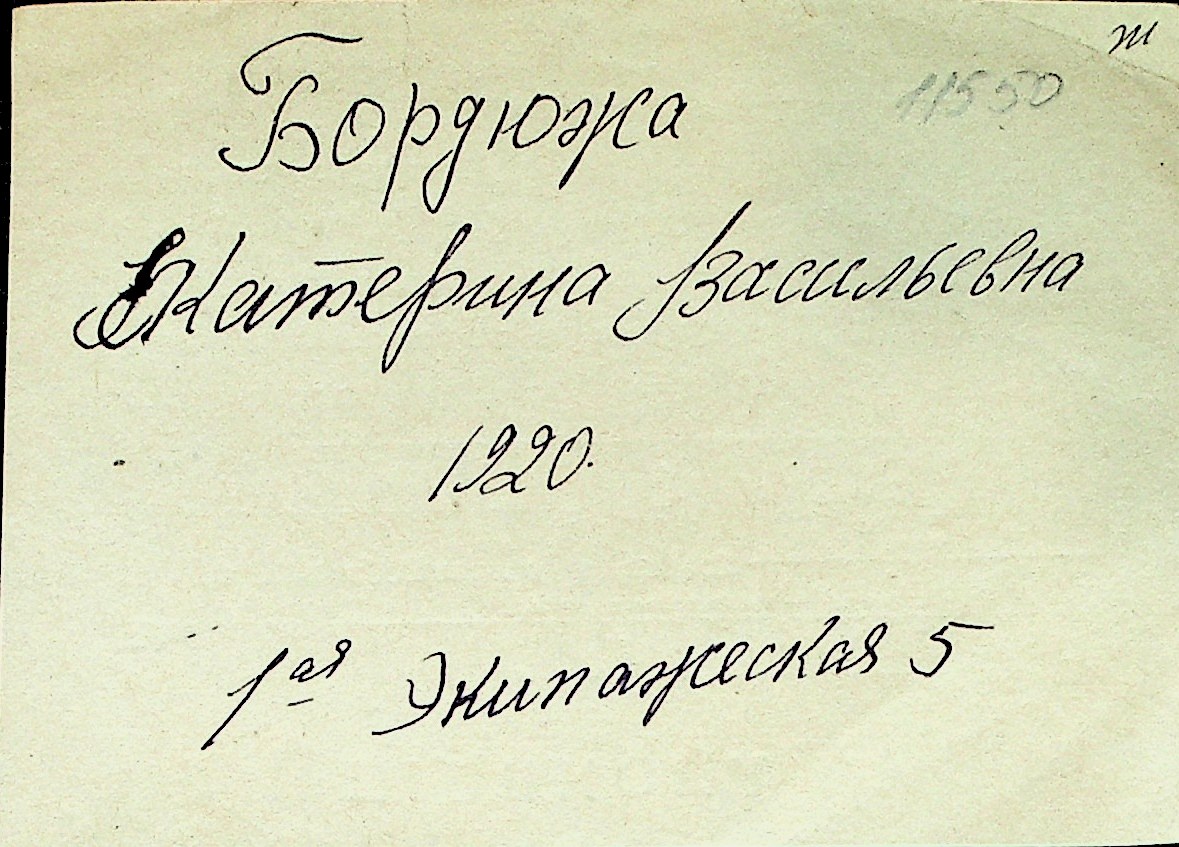 ж
11550
Бордюжа
Екатерина Васильевна
1920.
1ая Экипажеская 5